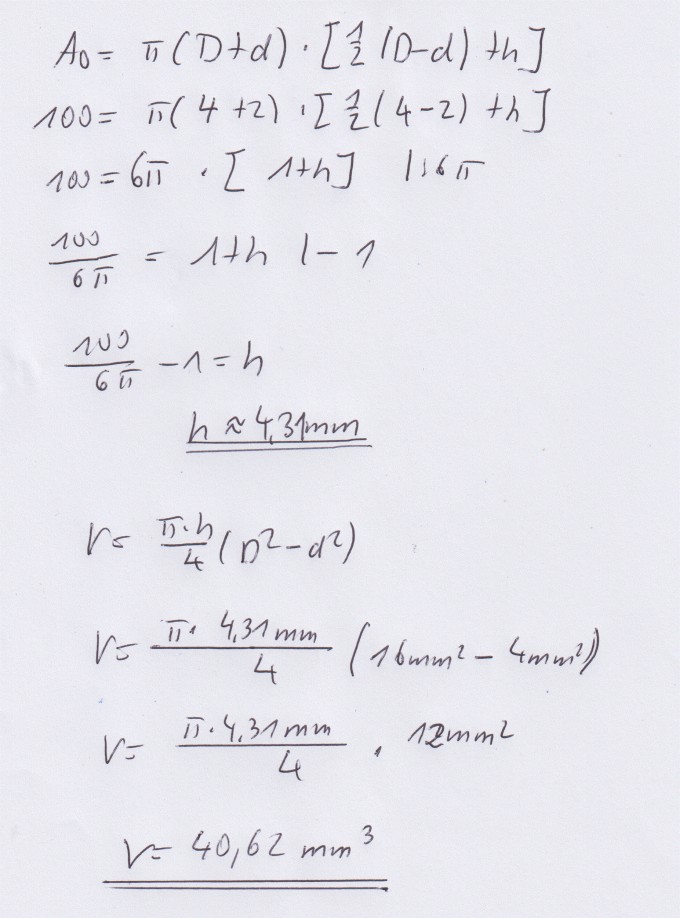 A₀ = π(D+d) · [½ (D-d) +h]
100 = π( 4 +2) · [½( 4-2) +h]
100 = 6π · [ 1+h] |:6π
100/6π = 1+h |-1
100/6π -1 = h
h ≈ 4,31mm
V= π·h/4 (D²-d²)
V= π· 4,31mm/4 (16mm² - 4mm²)
V= π·4,31mm/4 · 12mm²
V= 40,62 mm³